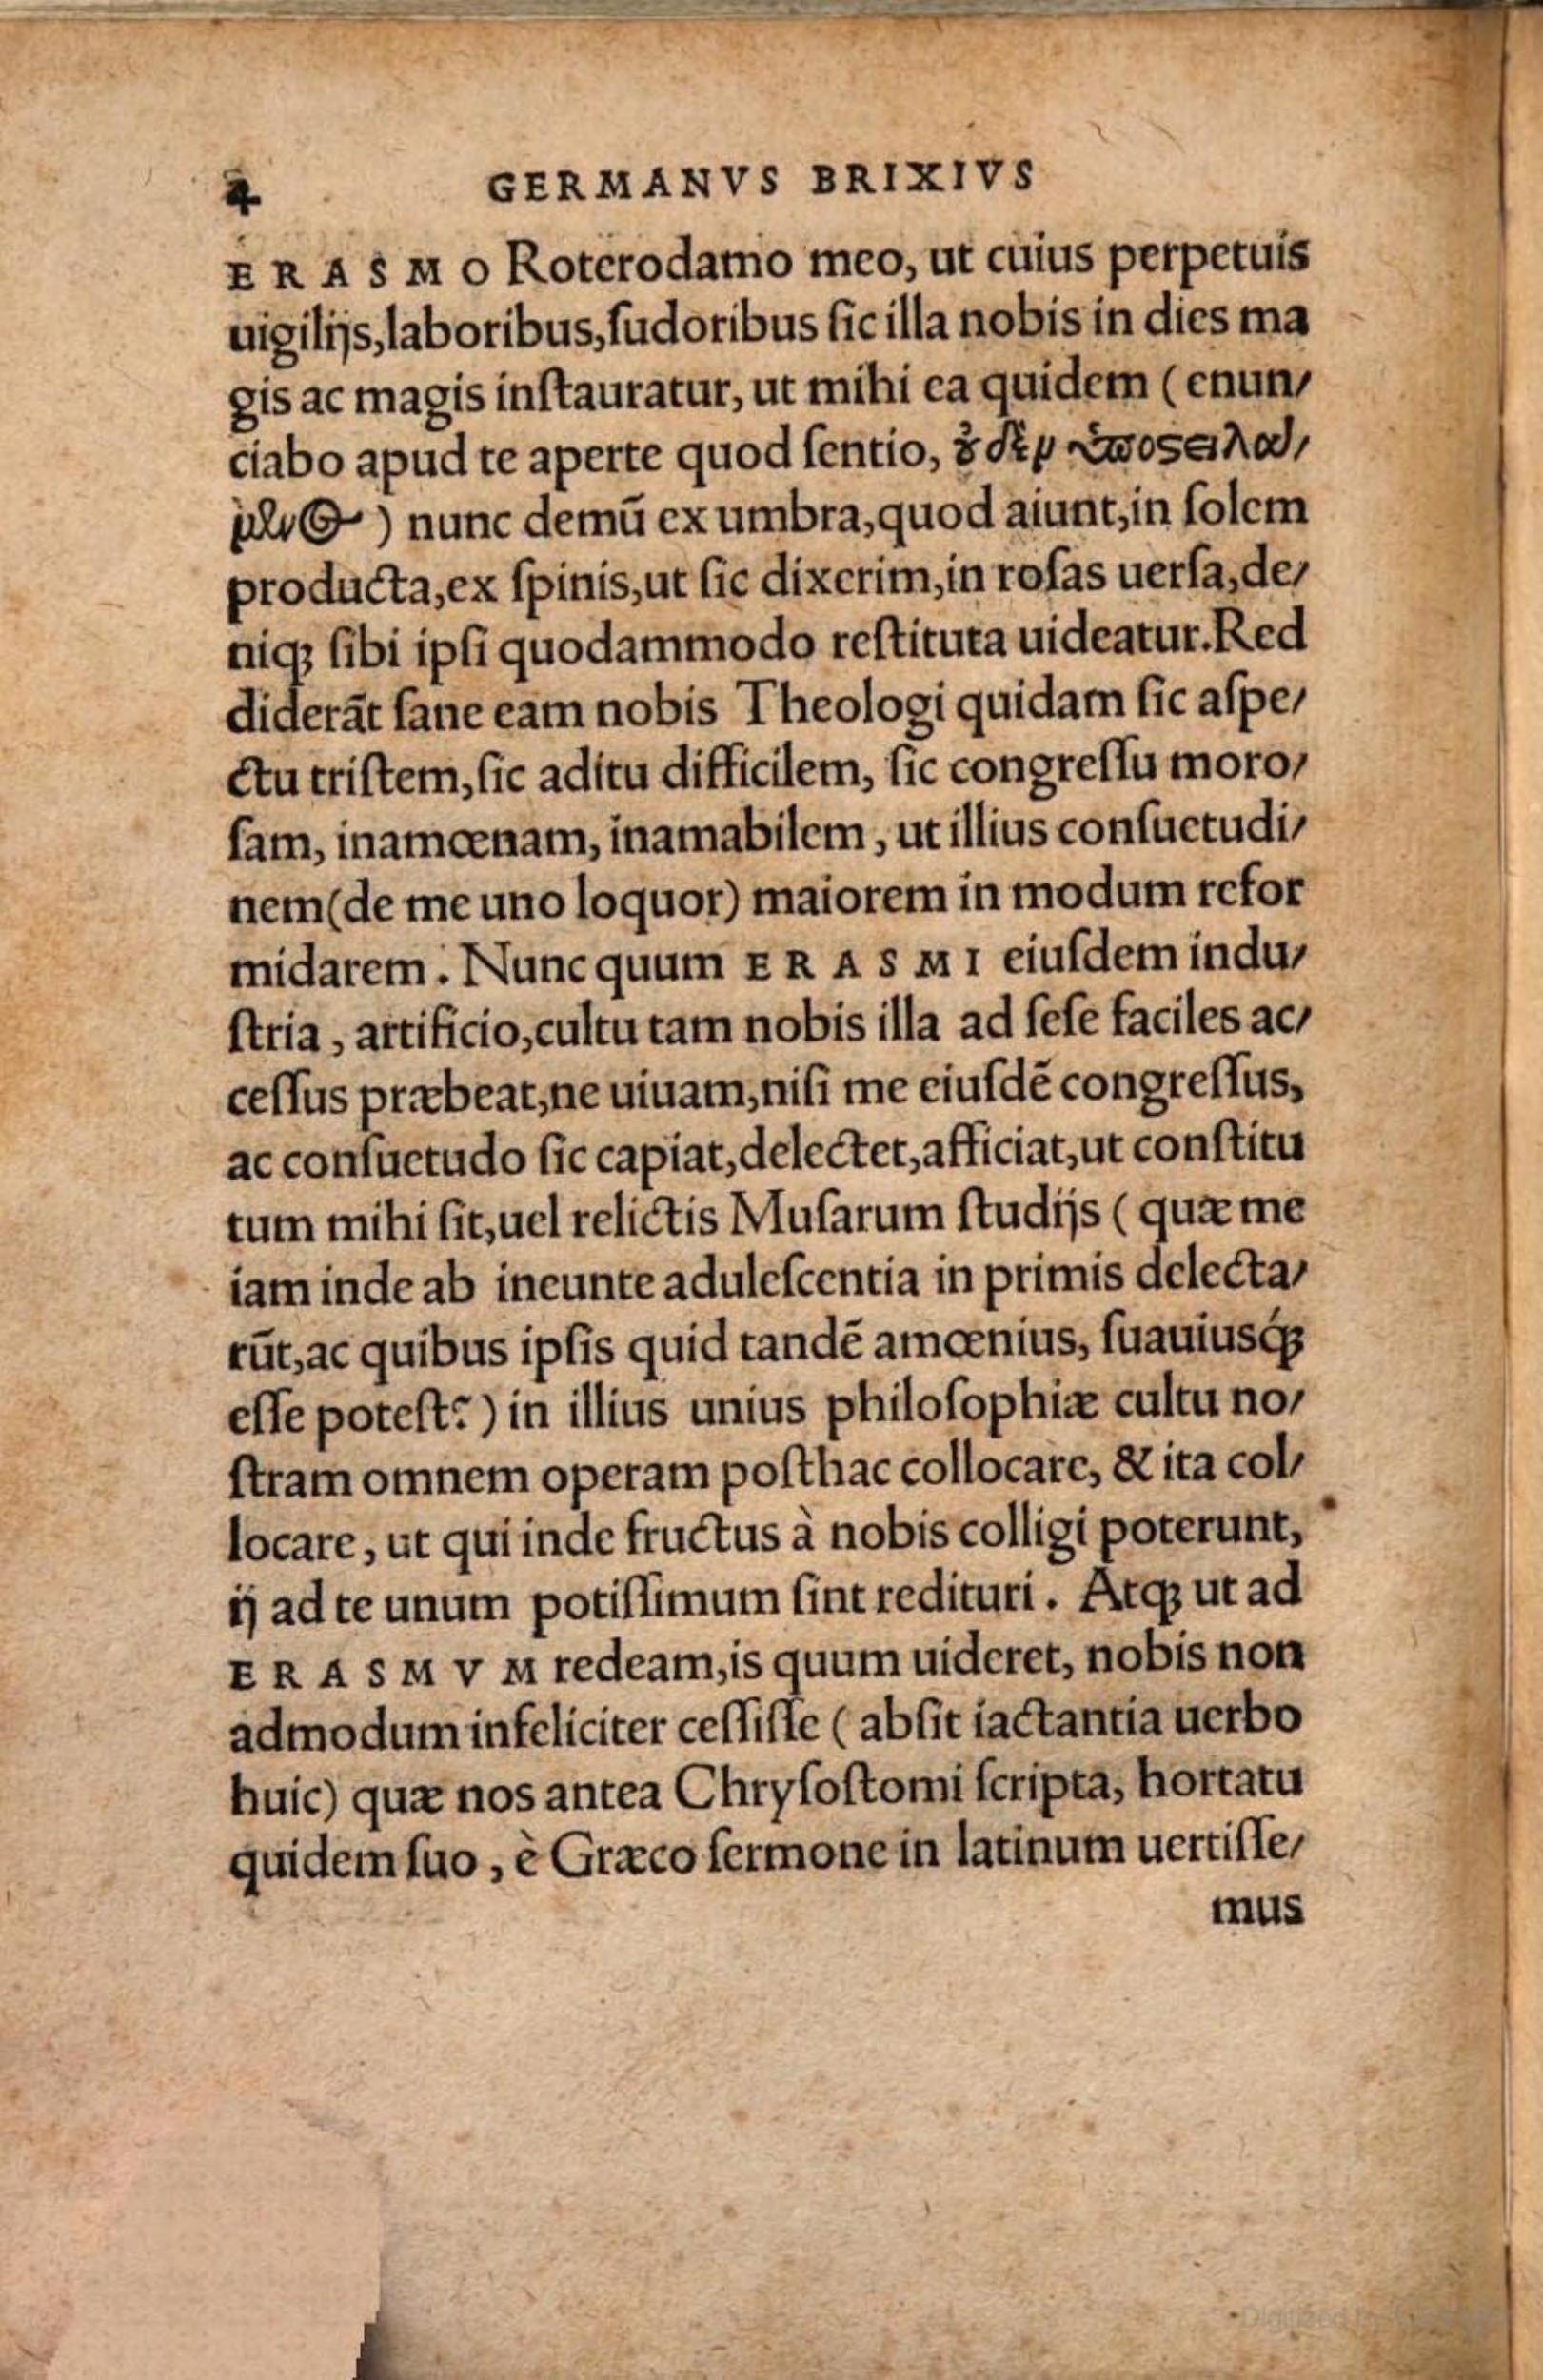 4 GERMANVS BRIXIVS
ERASMO Roterodamo meo, ut cuius perpetuis
uigilijs,laboribus,ſudoribus ſic illa nobis in dies ma
gis ac magis inſtauratur, ut mihi ea quidem (enun/
ciabo apud te aperte quod ſentio, οὐδὲν ὑποστειλά/
μενος) nunc demū ex umbra,quod aiunt,in ſolem
producta,ex ſpinis,ut ſic dixerim,in roſas uerſa,de/
niqꝫ ſibi ipſi quodammodo reſtituta uideatur.Red
diderāt ſane eam nobis Theologi quidam ſic aſpe/
ctu triſtem,ſic aditu difficilem, ſic congreſſu moro/
ſam, inamœnam, inamabilem, ut illius conſuetudi/
nem(de me uno loquor) maiorem in modum refor
midarem. Nunc quum ERASMI eiuſdem indu/
ſtria, artificio,cultu tam nobis illa ad ſeſe faciles ac/
ceſſus præbeat,ne uiuam,niſi me eiuſdē congreſſus,
ac conſuetudo ſic capiat,delectet,afficiat,ut conſtitu
tum mihi ſit,uel relictis Muſarum ſtudijs (quæ me
iam inde ab ineunte aduleſcentia in primis delecta/
rūt,ac quibus ipſis quid tandē amœnius, ſuauiusq́ꝫ
eſſe poteſt?) in illius unius philoſophiæ cultu no/
ſtram omnem operam poſthac collocare, & ita col/
locare, ut qui inde fructus à nobis colligi poterunt,
ij ad te unum potiſſimum ſint redituri. Atqꝫ ut ad
ERASMVM redeam,is quum uideret, nobis non
admodum infeliciter ceſſiſſe (abſit iactantia uerbo
huic) quæ nos antea Chryſoſtomi ſcripta, hortatu
quidem ſuo, è Græco ſermone in latinum uertiſſe/
mus